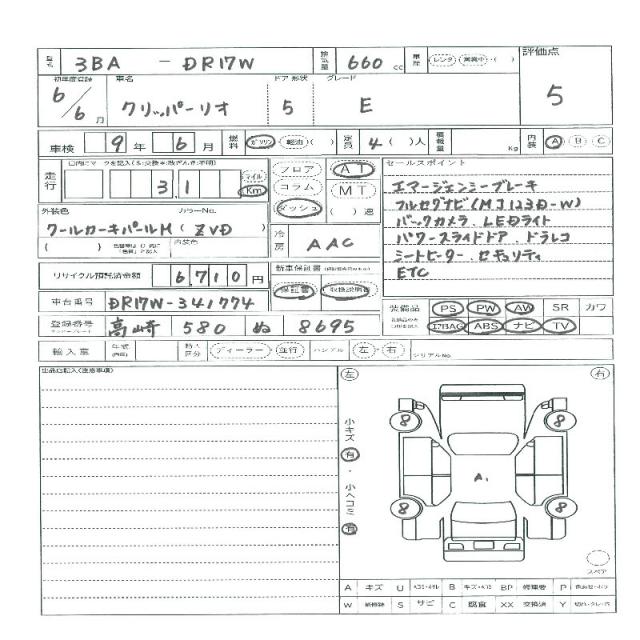 型式 3BA - DR17W 排気量 660 cc 車歴 レンタ 営業中・( ) 評価点
初年度登録 車名 ドア 形状 グレード
6/6月 クリッパーリオ 5 E 5
車検 9年 6月 燃料 ガソリン 軽油・( ) 定員 4( )人 積載量 Kg 内装 A B C
走行 31 マイル Km フロア AT セールスポイント
コラム MT
ダッシュ ( )速
エマージェンシーブレーキ
フルセグナビ(MJ123D-W)
バックカメラ、LEDライト
パワースライドドア、ドラレコ
シートヒーター、セキュリティ
ETC
外装色 カラーNo.
クールカーキパールM (ZVD)
( ) 内装色
冷房 AAC
リサイクル預託済金額 6,710円 新車保証書
保証書 取扱説明書
車台番号 DR17W-341774
装備品 PS PW AW SR カワ
エアBAG ABS ナビ TV
登録番号 高崎 580 ぬ 8695
輸入車 年式 輸入区分 ディーラー・並行 ハンドル 左・右 シリアルNo.
出品店記入(注意事項)
左 右
小キズ 有・小ヘコミ 有
8 8
A1
8 8
スペア
A キズ U B キズ・ヘコミ BP 修理要 P
W S サビ C 腐食 XX 交換済 Y